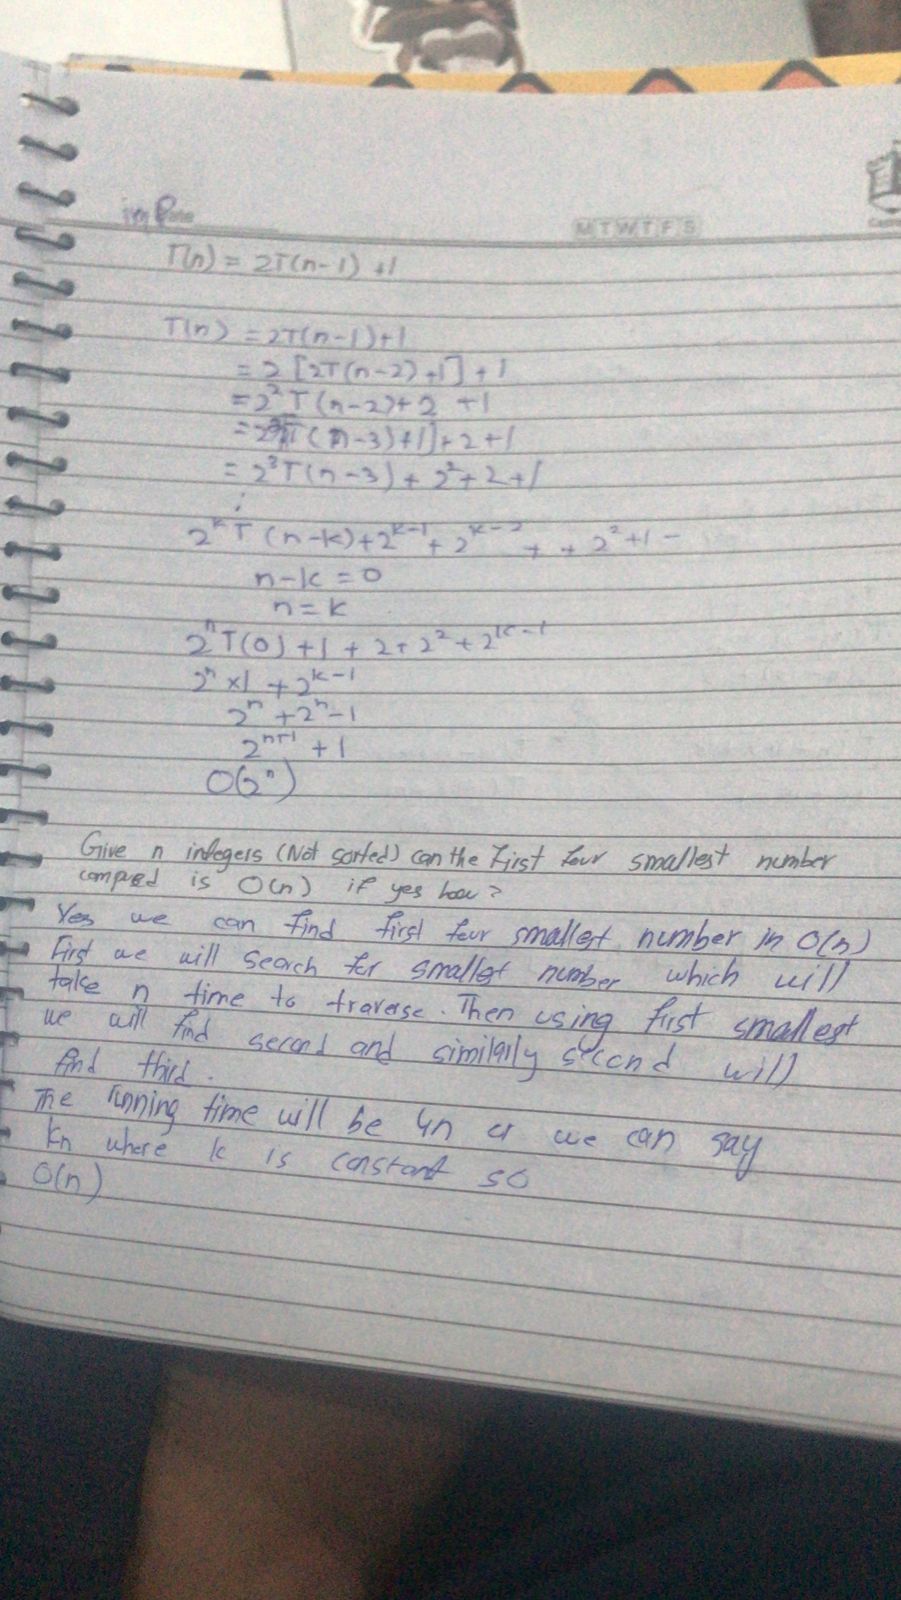 M T W T F S
T(n) = 2T(n-1) +1
T(n) = 2T(n-1)+1
= 2 [2T(n-2) +1] + 1
= 2² T(n-2)+ 2 +1
(n-3)+1]+2+1
= 2³T(n-3) + 2²+2+1
⋮
2^k T (n-k)+2^k-1 + 2^k-2 + + 2²+1 -
n-k = 0
n = k
2^n T(0) +1 + 2+ 2² + 2^k-1
2^n ×1 + 2^k-1
2^n + 2^n -1
2^n+1 + 1
O(2^n)
Give n integers (Not sorted) can the first four smallest number
is O(n) if yes how?
Yes we can find first four smallest number in O(n)
First we will search for smallest number which will
take n time to traverse. Then using first smallest
we will find second and similarly second will
find third.
The running time will be 4n we can say
Kn where k is constant so
O(n)